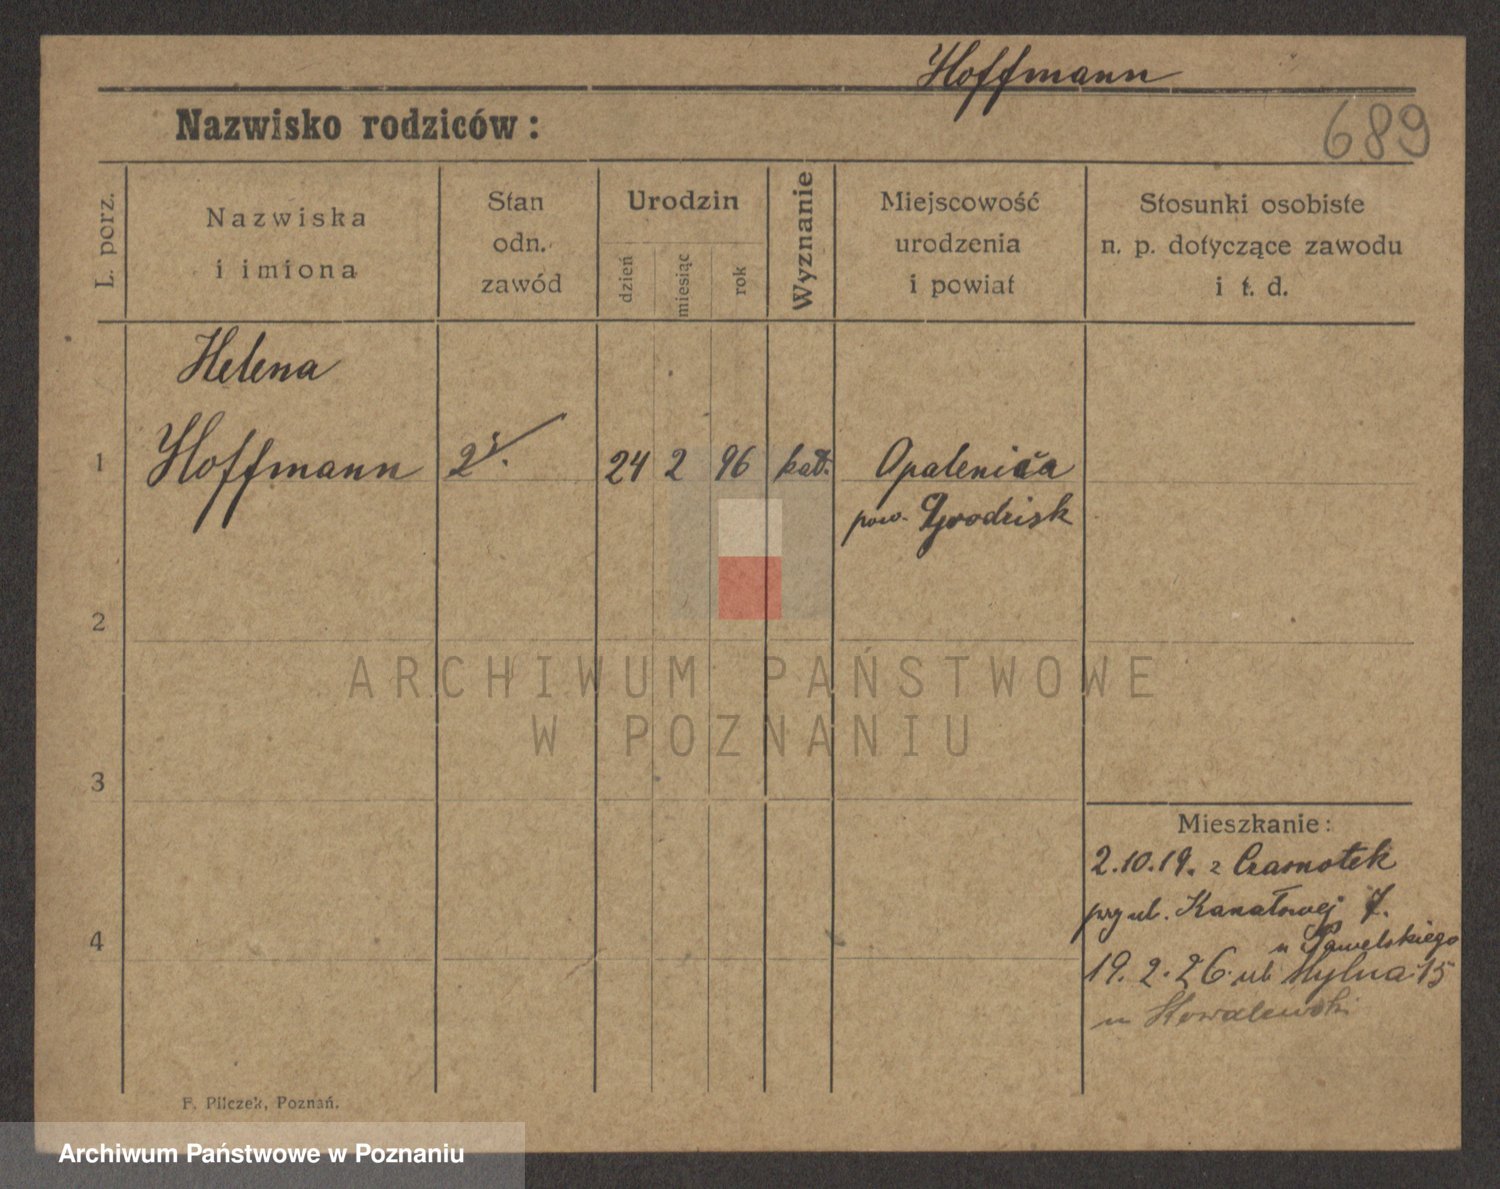 Hoffmann
Nazwisko rodziców:
689
L. porz.
Nazwiska
i imiona
Stan
odn.
zawód
Urodzin
dzień
miesiąc
rok
Wyznanie
Miejscowość
urodzenia
i powiat
Stosunki osobiste
n. p. dotyczące zawodu
i t. d.
Helena
1 Hoffmann 24 2 96 kat. Opalenica
pow. Grodzisk
2
3
4
Mieszkanie:
2.10.19. z Czarnotek
przy ul. Kanałowej 7.
u Pawelskiego
19.2.26. ul. Mylna 15
u Kowalewski
F. Pilczek, Poznań.
ARCHIWUM PAŃSTWOWE
W POZNANIU
Archiwum Państwowe w Poznaniu